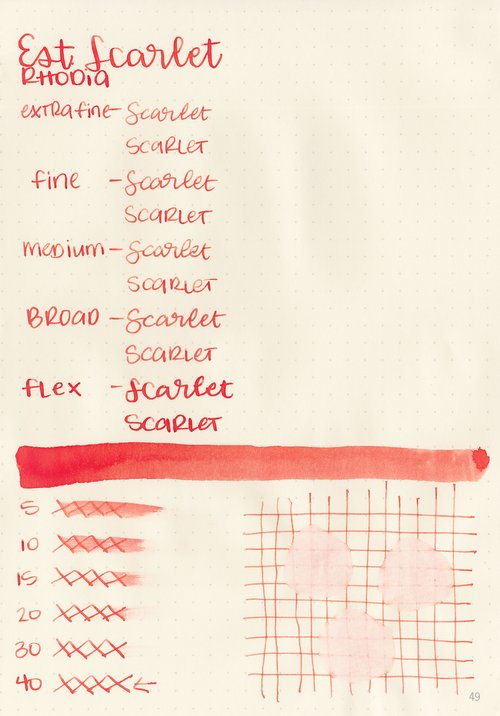 Est. Scarlet
RHODIA
extrafine - Scarlet
SCARLET
fine - Scarlet
SCARLET
medium - Scarlet
SCARLET
BROAD - Scarlet
SCARLET
flex - Scarlet
SCARLET
5
10
15
20
30
40
49